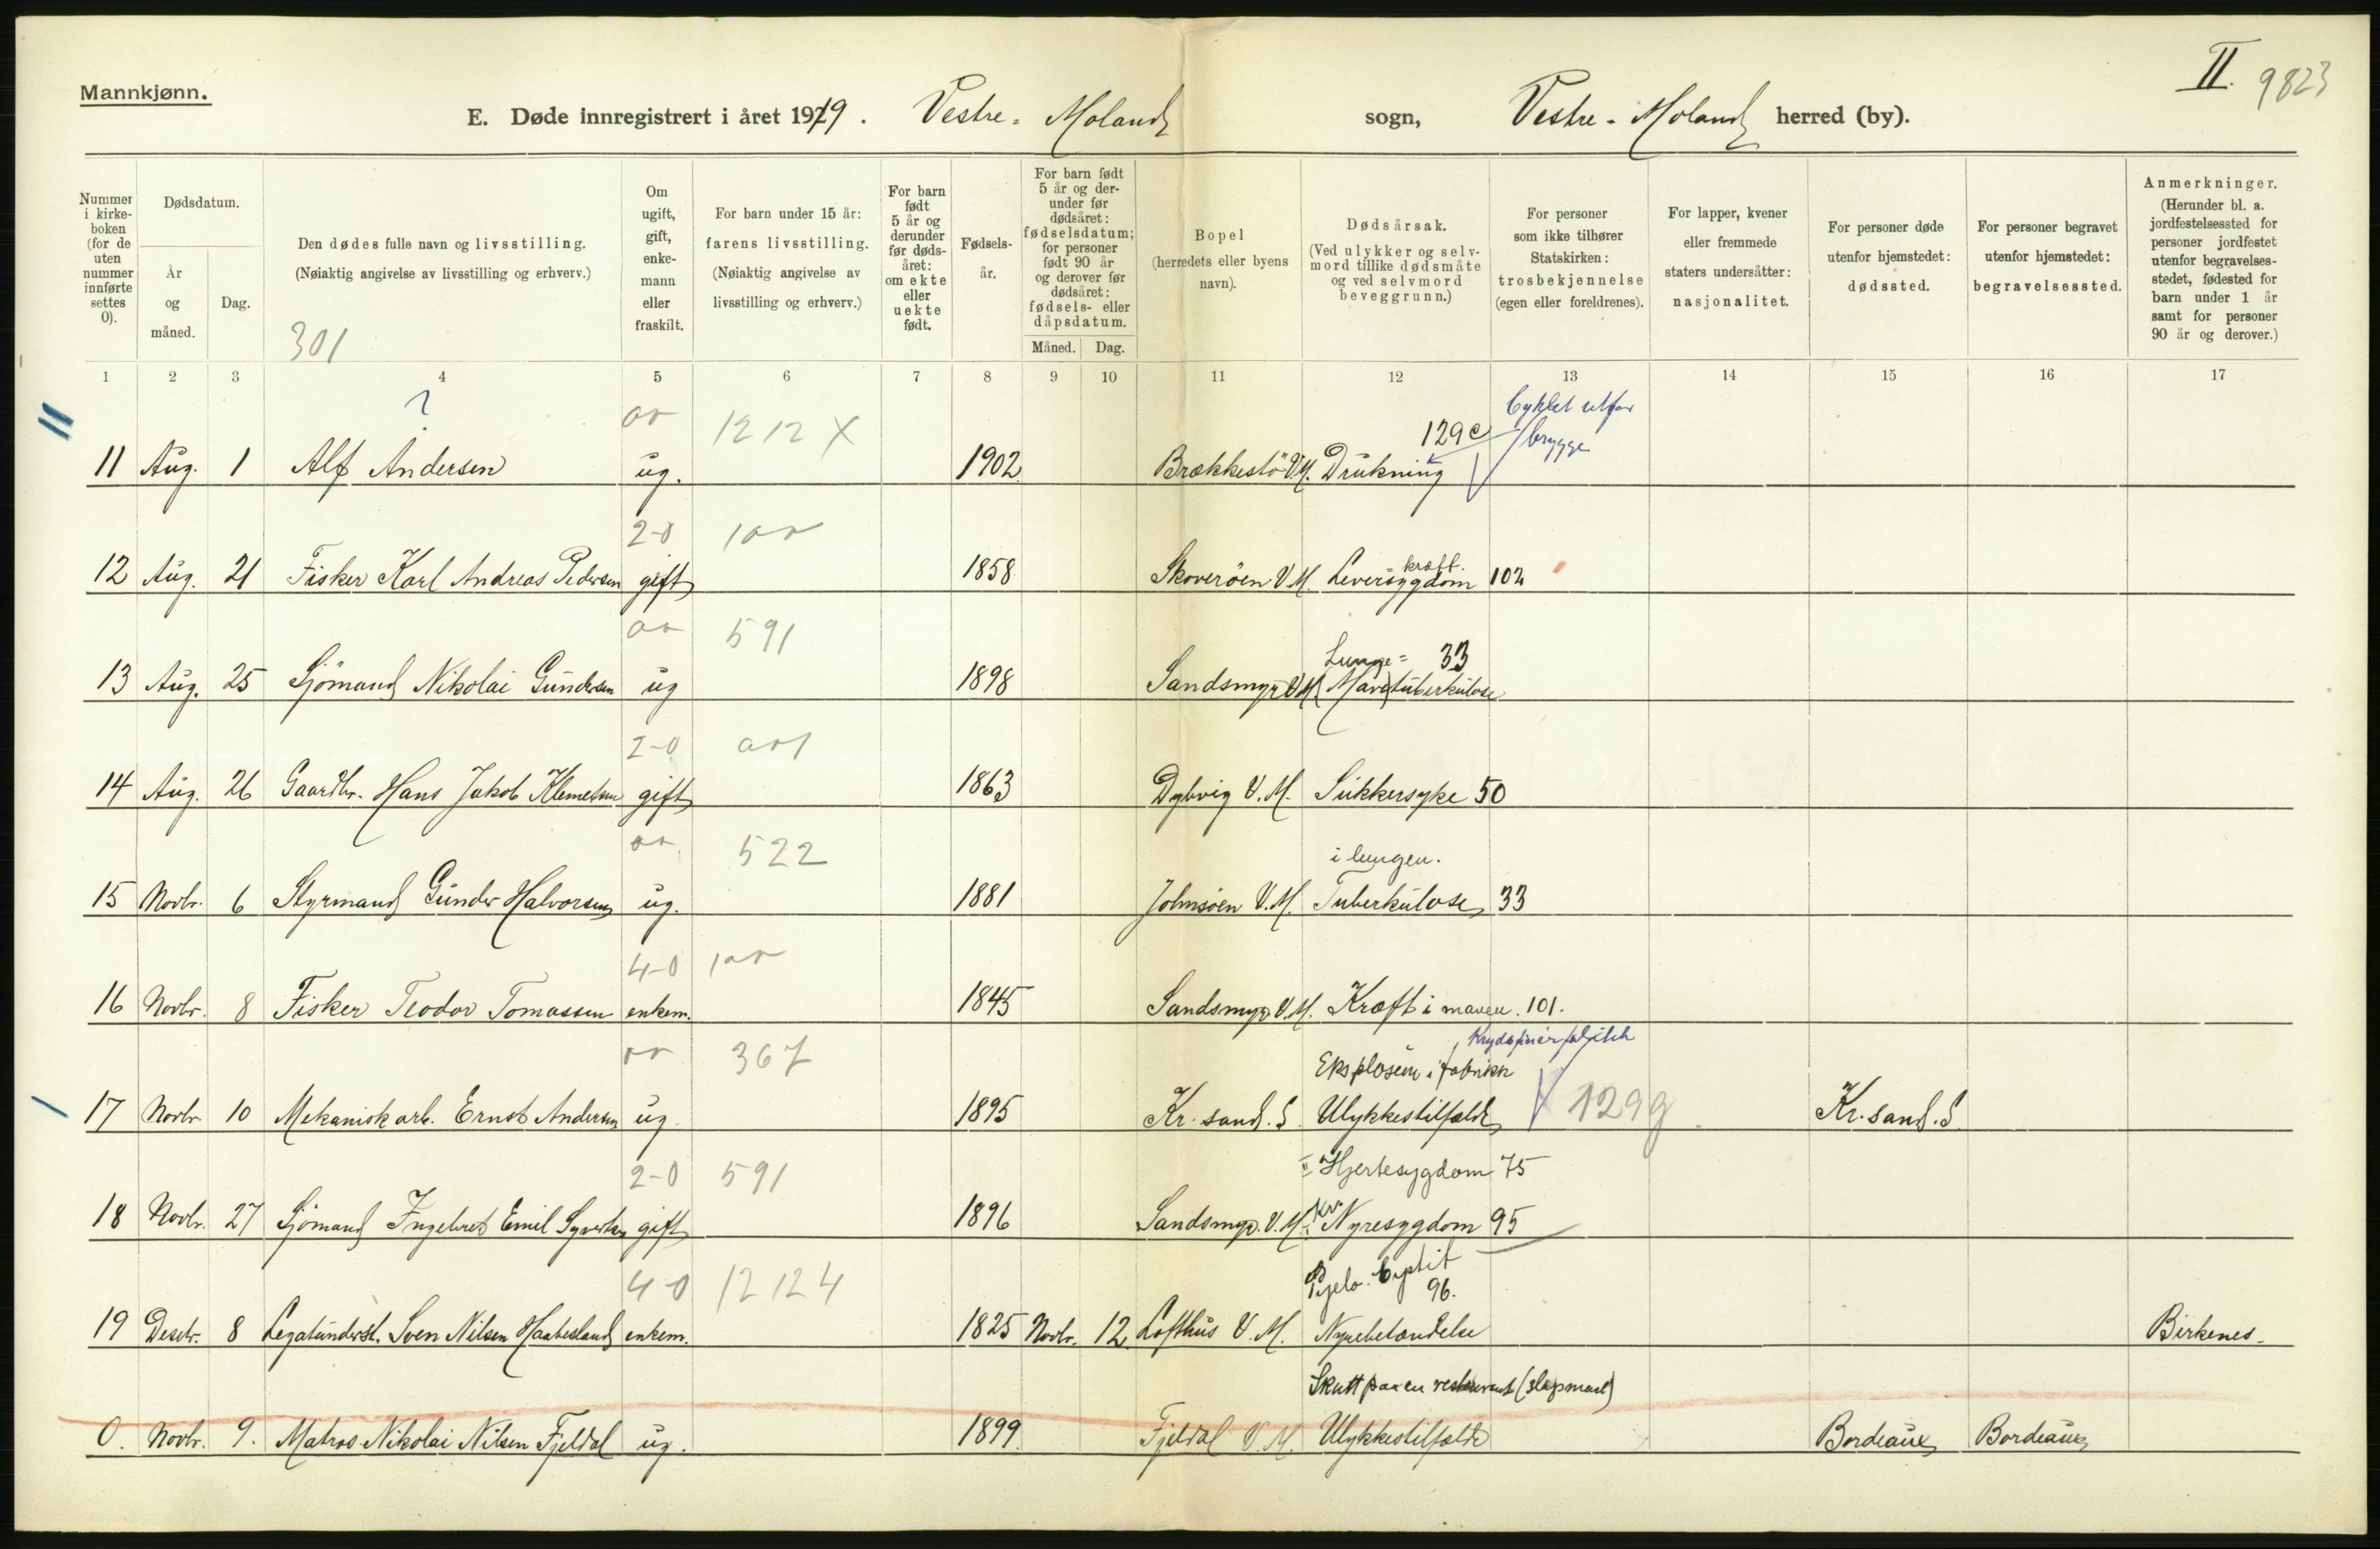 Mannkjønn.
II. 9823
E. Døde innregistrert i året 1919. Vestre-Moland sogn, Vestre-Moland herred (by).
Nummer i kirkeboken (for de uten nummer innførte settes 0).
Dødsdatum.
År og måned.
Dag.
Den dødes fulle navn og livsstilling.
(Nøiaktig angivelse av livsstilling og erhverv.)
301
Om ugift, gift, enkemann eller fraskilt.
For barn under 15 år: farens livsstilling. (Nøiaktig angivelse av livsstilling og erhverv.)
For barn født 5 år og derunder før dødsåret: om ekte eller uekte født.
Fødselsår.
For barn født 5 år og derunder før dødsåret: fødselsdatum; for personer født 90 år og derover før dødsåret: fødsels- eller dåpsdatum.
Måned. Dag.
Bopel (herredets eller byens navn).
Dødsårsak. (Ved ulykker og selvmord tillike dødsmåte og ved selvmord beveggrunn.)
For personer som ikke tilhører Statskirken: trosbekjennelse (egen eller foreldrenes).
For lapper, kvener eller fremmede staters undersåtter: nasjonalitet.
For personer døde utenfor hjemstedet: dødssted.
For personer begravet utenfor hjemstedet: begravelsessted.
Anmerkninger. (Herunder bl. a. jordfestelsessted for personer jordfestet utenfor begravelsesstedet, fødested for barn under 1 år samt for personer 90 år og derover.)
1 2 3 4 5 6 7 8 9 10 11 12 13 14 15 16 17
? 1212 X 129c Cyklet utfor brygge
11 Aug. 1 Alf Andersen ug. 1902 Brækkestö V.M. Drukning
2-0 kræft.
12 Aug. 21 Fisker Karl Andreas Pedersen gift 1858 Skoveröen V.M. Leversygdom 102
591 Lunge= 33
13 Aug. 25 Sjömand Nikolai Gundersen ug 1898 Sandsmyr V.M. (Mave)tuberkulose
2-0
14 Aug. 26 Gaardbr. Hans Jakob Klemetsen gift 1863 Dybvig V.M. Sukkersyke 50
522 i lungen.
15 Novbr. 6 Styrmand Gunder Halvorsen ug. 1881 Johnsöen V.M. Tuberkulose 33
4-0
16 Novbr. 8 Fisker Teodor Tomassen enkem. 1845 Sandsmyr. V.M. Kræft i maven. 101.
367 Eksplosion i fabrikk
17 Novbr. 10 Mekanisk arb. Ernst Andersen ug. 1895 Kr.sand. S. Ulykkestilfælde 129g Kr.sand. S
2-0 591 II Hjertesygdom 75
18 Novbr. 27 Sjömand Ingebret Emil Syvertsen gift 1896 Sandsmyr. V.M. I Kr. Nyresygdom 95
4-0 12124 Pyelo. Cystit 96.
19 Desbr. 8 Legatunderst. Sven Nilsen Haabesland enkem. 1825 Novbr. 12. Lofthus V.M. Nyrebetændelse Birkenes.
Skutt paa en restaurant (slagsmaal)
0. Novbr. 9. Matros Nikolai Nilsen Fjeldal ug. 1899. Fjeldal V.M. Ulykkestilfælde Bordeaux Bordeaux